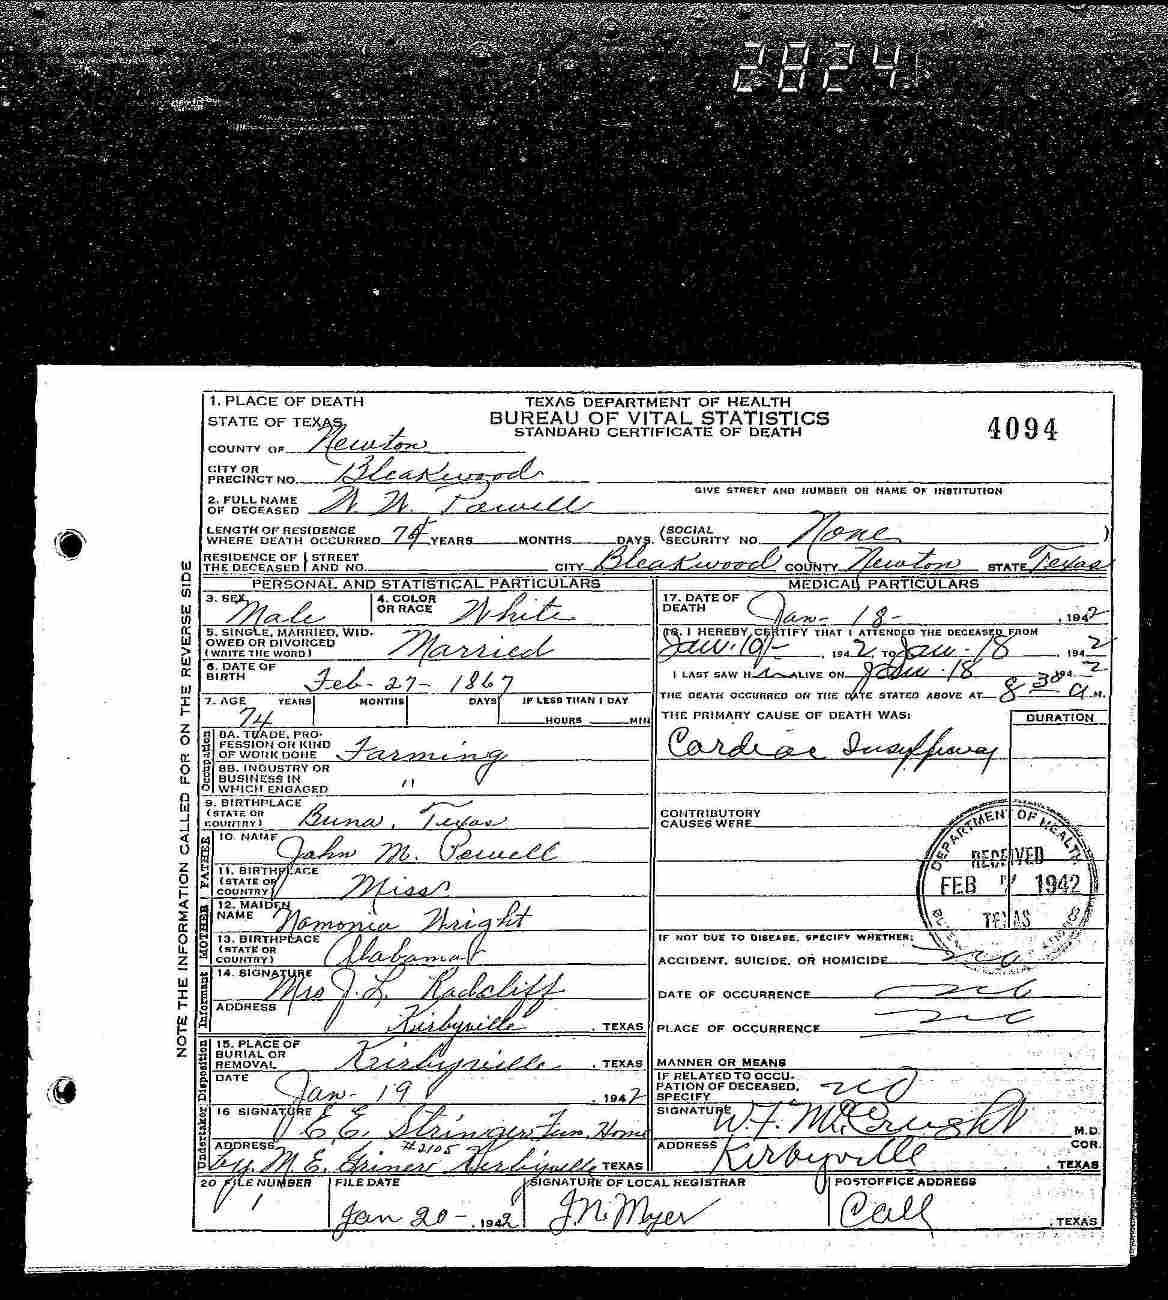 2824
1. PLACE OF DEATH
STATE OF TEXAS
COUNTY OF Newton
CITY OR
PRECINCT NO. Bleakwood
TEXAS DEPARTMENT OF HEALTH
BUREAU OF VITAL STATISTICS
STANDARD CERTIFICATE OF DEATH
4094
GIVE STREET AND NUMBER OR NAME OF INSTITUTION
2. FULL NAME
OF DECEASED W. W. Powell
LENGTH OF RESIDENCE
WHERE DEATH OCCURRED 74 YEARS MONTHS DAYS. (SOCIAL
SECURITY NO. None )
RESIDENCE OF STREET
THE DECEASED AND NO. CITY Bleakwood COUNTY Newton STATE Texas
NOTE THE INFORMATION CALLED FOR ON THE REVERSE SIDE
PERSONAL AND STATISTICAL PARTICULARS
3. SEX Male
4. COLOR
OR RACE White
5. SINGLE, MARRIED, WID-
OWED OR DIVORCED
(WRITE THE WORD) Married
6. DATE OF
BIRTH Feb- 27- 1867
7. AGE YEARS MONTHS DAYS IF LESS THAN 1 DAY
74 HOURS MIN
Occupation
8A. TRADE, PRO-
FESSION OR KIND
OF WORK DONE Farming
8B. INDUSTRY OR
BUSINESS IN
WHICH ENGAGED "
9. BIRTHPLACE
(STATE OR
COUNTRY) Buna, Texas
FATHER
10. NAME John M. Powell
11. BIRTHPLACE
(STATE OR
COUNTRY) Miss
MOTHER
12. MAIDEN
NAME Namonia Wright
13. BIRTHPLACE
(STATE OR
COUNTRY) Alabama
Informant
14. SIGNATURE Mrs J. L. Radcliff
ADDRESS Kirbyville, TEXAS
Disposition
15. PLACE OF
BURIAL OR
REMOVAL Kirbyville, TEXAS
DATE Jan- 19, 1942
Undertaker
16 SIGNATURE E. E. Stringer Fun. Home
ADDRESS #2105
by. M. E. Griner Kirbyville TEXAS
MEDICAL PARTICULARS
17. DATE OF
DEATH Jan- 18-, 1942
18. I HEREBY CERTIFY THAT I ATTENDED THE DECEASED FROM
Jan. 10-, 1942 TO Jan. 18 1942
I LAST SAW Him ALIVE ON Jan. 18 1942
THE DEATH OCCURRED ON THE DATE STATED ABOVE AT 8 30 a M.
THE PRIMARY CAUSE OF DEATH WAS: DURATION
Cardiac Insufficiency
CONTRIBUTORY
CAUSES WERE
DEPARTMENT OF HEALTH
RECEIVED
FEB 1942
TEXAS
STATISTICS
IF NOT DUE TO DISEASE, SPECIFY WHETHER:
ACCIDENT, SUICIDE, OR HOMICIDE no
DATE OF OCCURRENCE no
PLACE OF OCCURRENCE no
MANNER OR MEANS
IF RELATED TO OCCU-
PATION OF DECEASED,
SPECIFY no
SIGNATURE W. F. McCreight M.D.
COR.
ADDRESS Kirbyville, TEXAS
20 FILE NUMBER FILE DATE SIGNATURE OF LOCAL REGISTRAR POSTOFFICE ADDRESS
1 Jan 20-, 1942 J. N. Myer Call, TEXAS